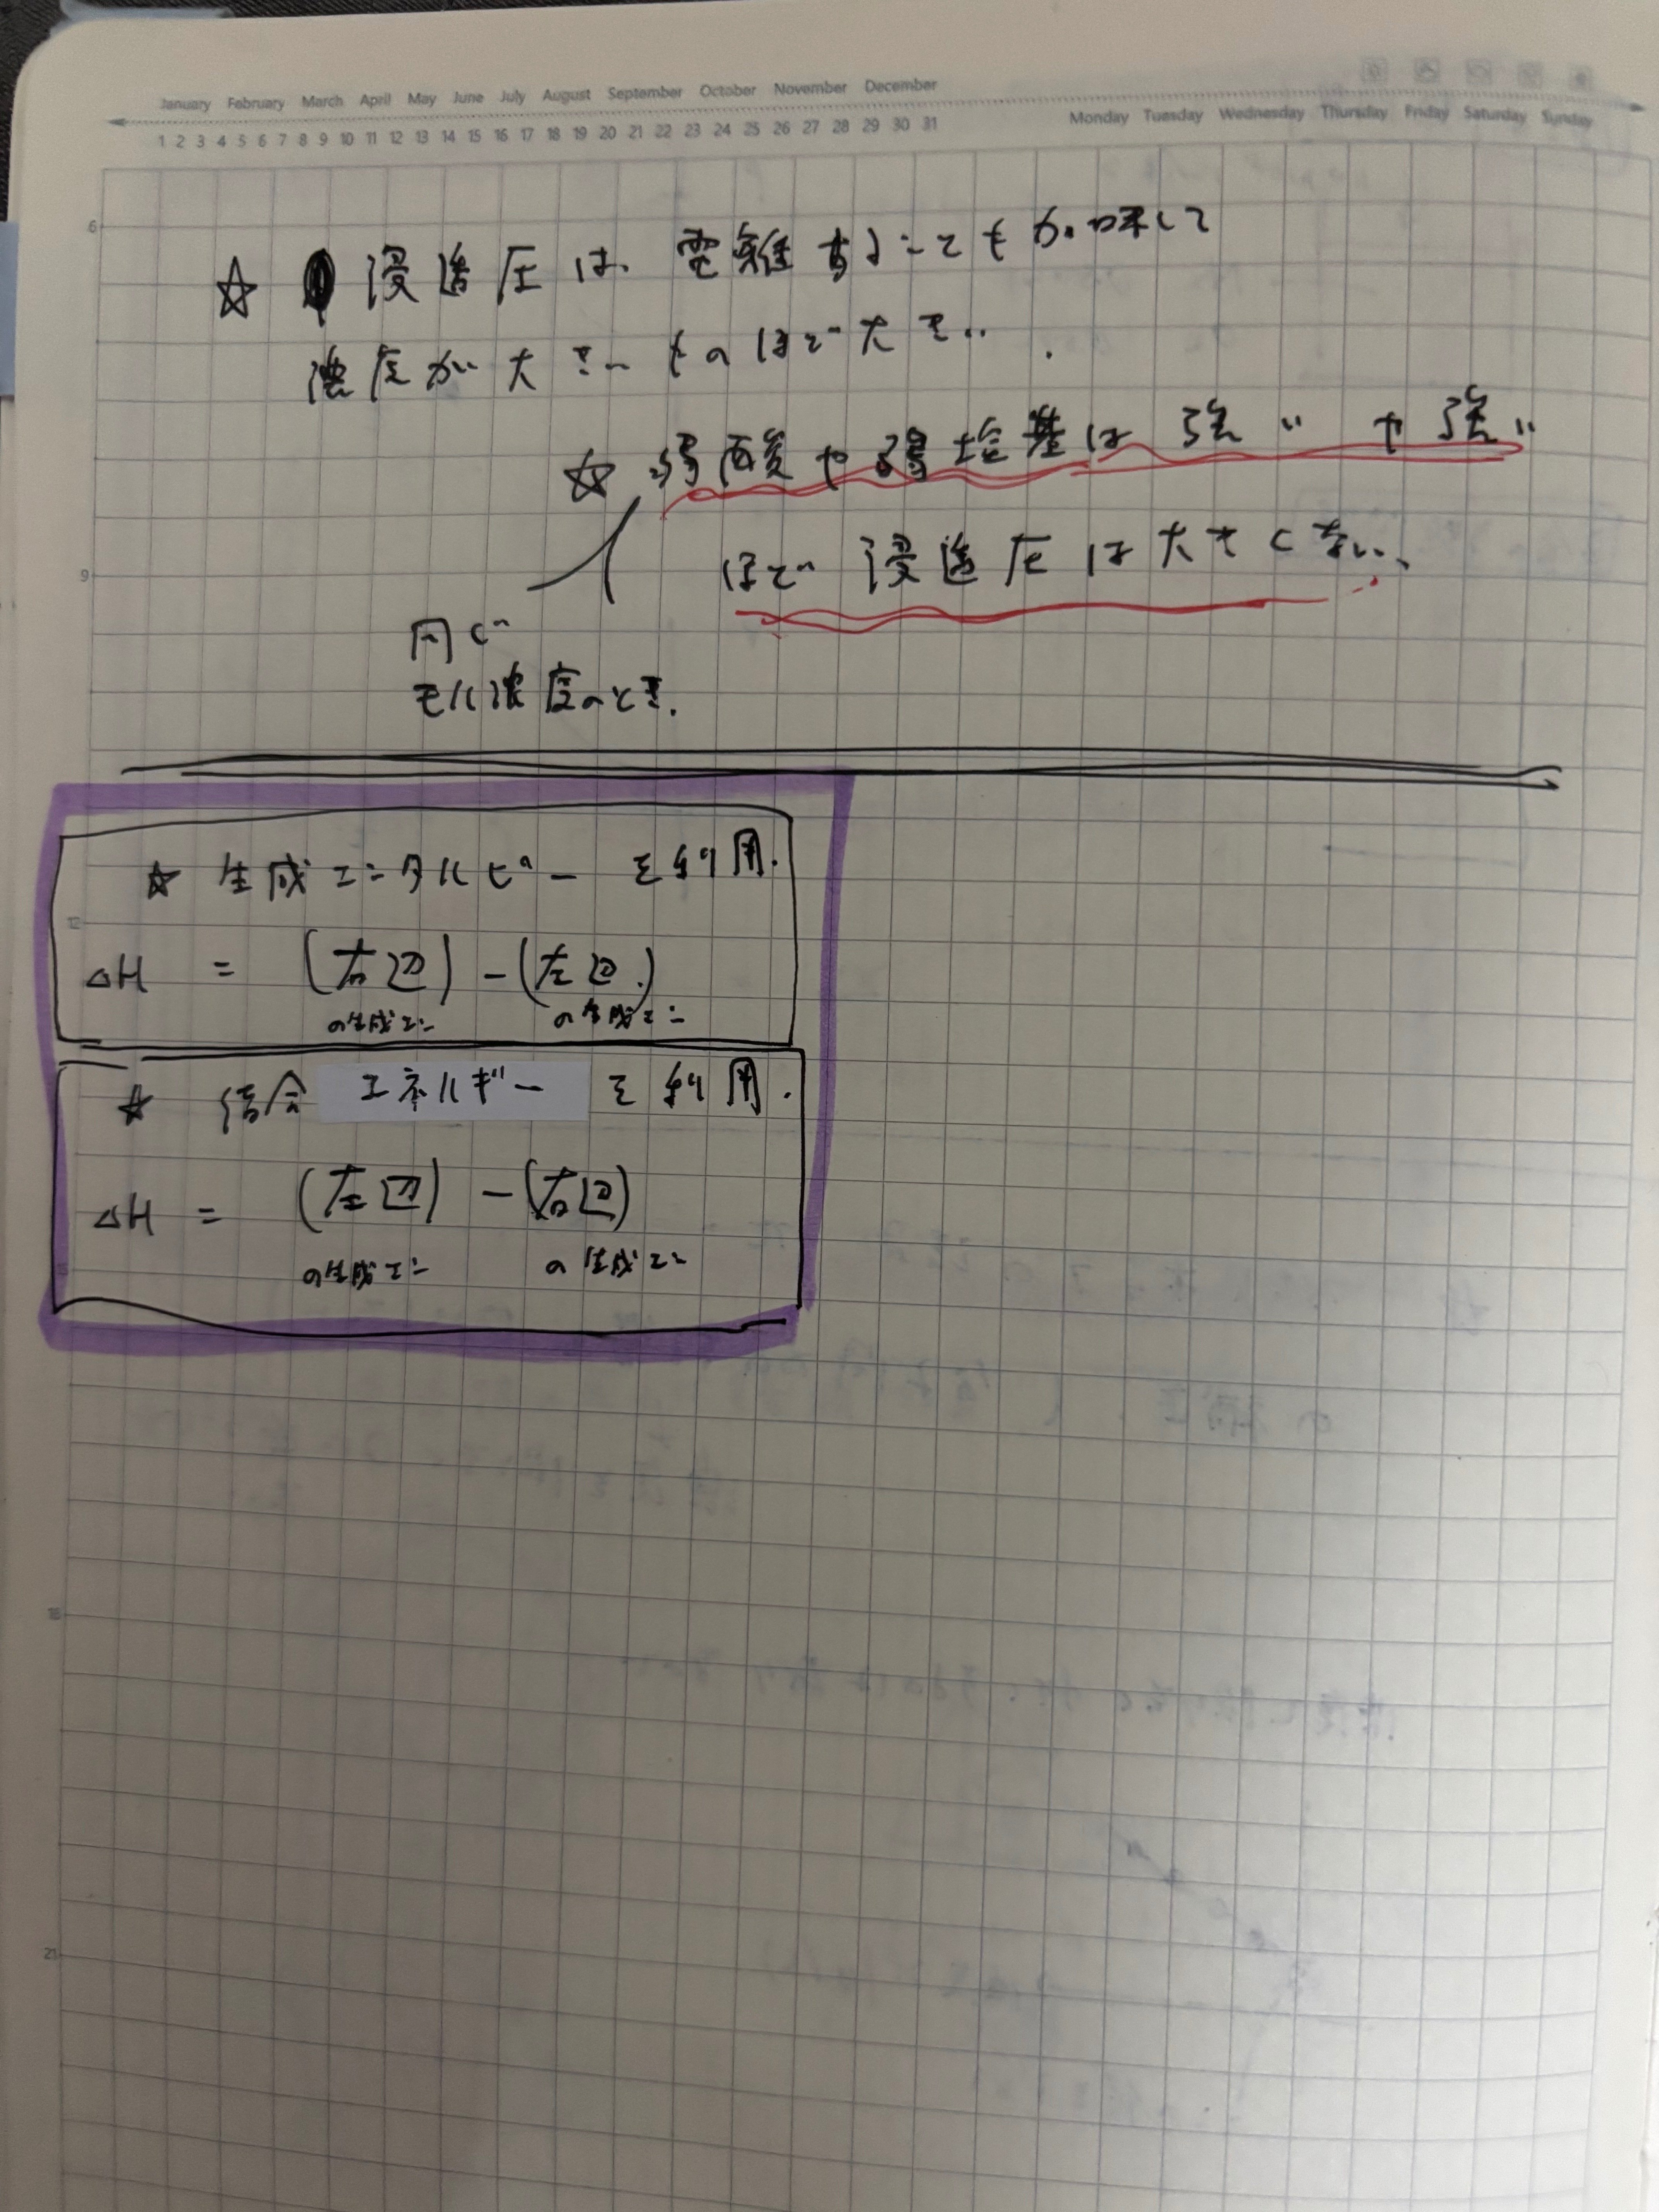 January February March April May June July August September October November December
1 2 3 4 5 6 7 8 9 10 11 12 13 14 15 16 17 18 19 20 21 22 23 24 25 26 27 28 29 30 31
Monday Tuesday Wednesday Thursday Friday Saturday Sunday
6
☆ 浸透圧は、電離することも加味して
濃度が大きいものほど大きい.
☆ 弱酸や弱塩基は強〃や強〃
9
ほど浸透圧は大きくない、
同じ
モル濃度のとき.
☆ 生成エンタルピーを利用.
12
ΔH = (右辺) - (左辺)
の生成エン の生成エン
☆ 結合エネルギーを利用.
ΔH = (左辺) - (右辺)
15
の生成エン の生成エン
18
21